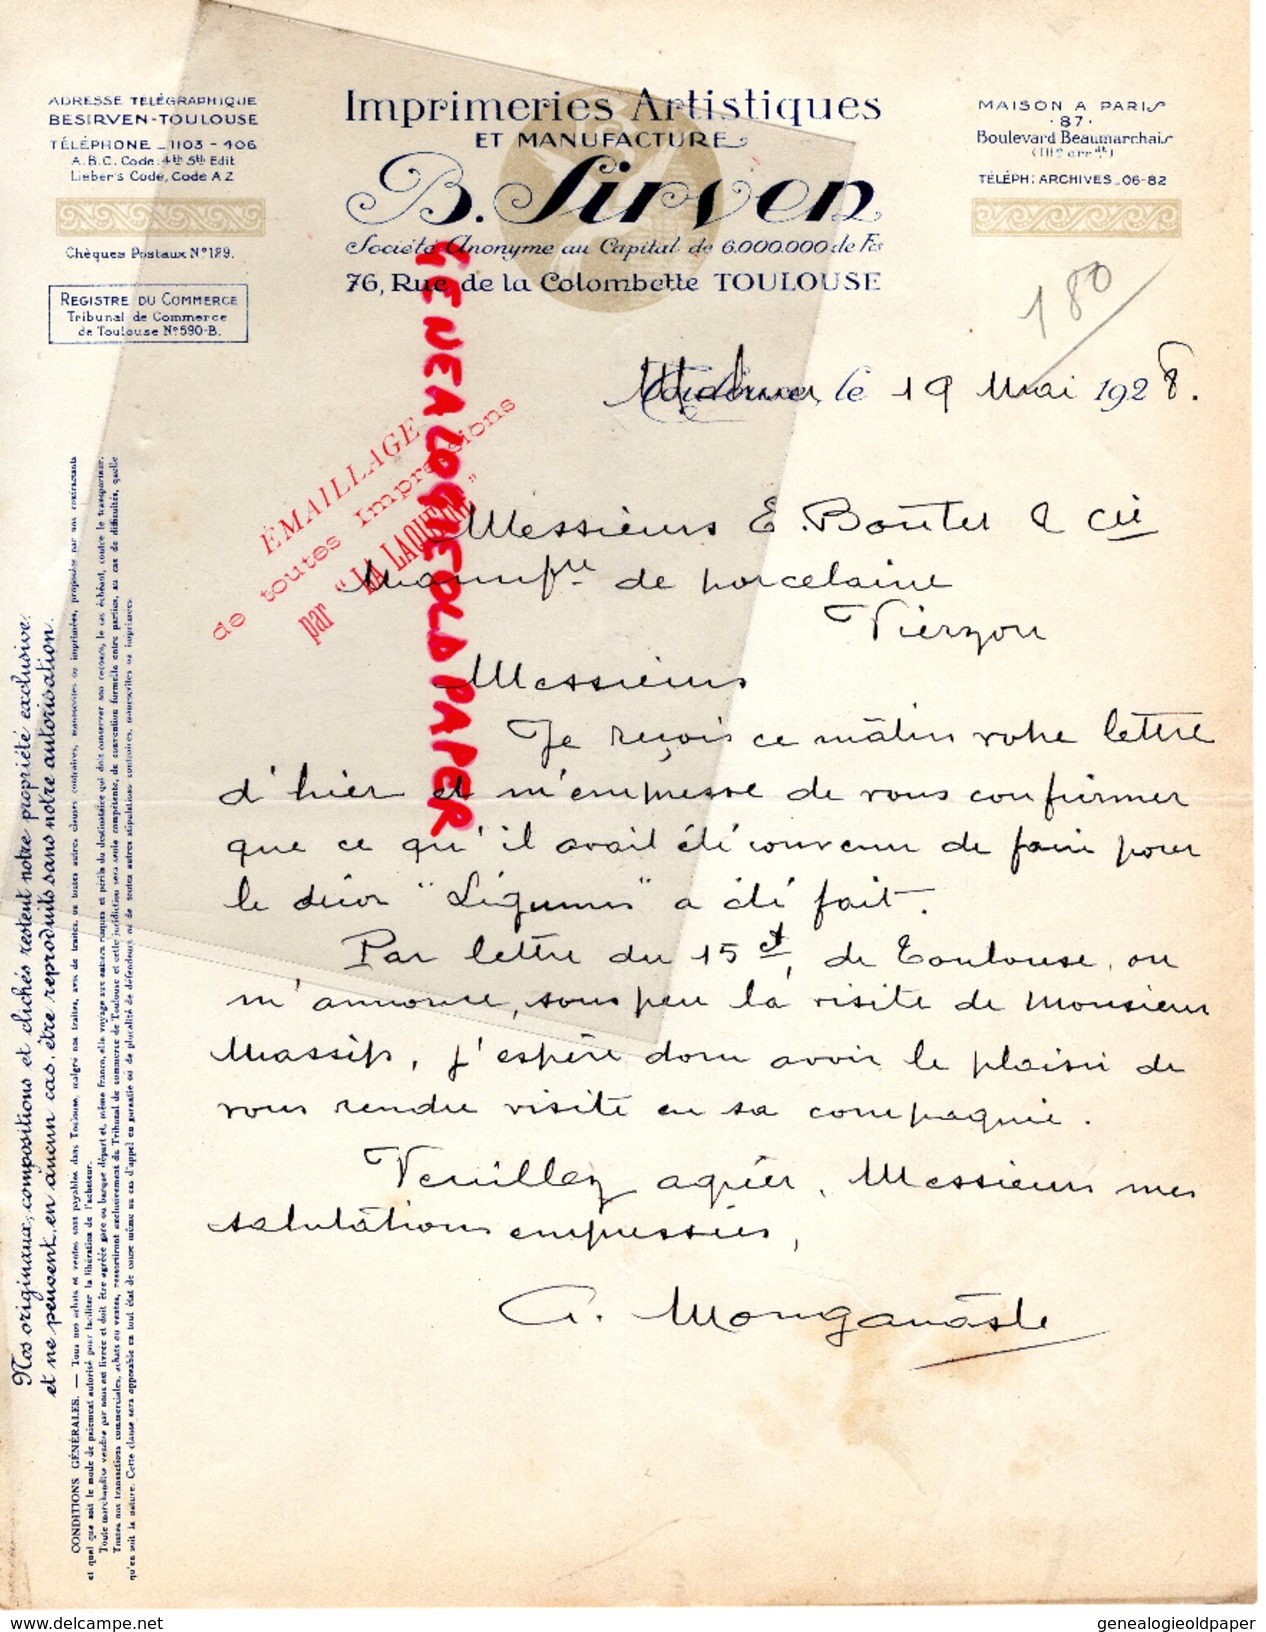 ADRESSE TÉLÉGRAPHIQUE
BESIRVEN-TOULOUSE
TÉLÉPHONE _ 1103 - 406
A.B.C. Code: 4th 5th Edit
Lieber's Code, Code A Z
Chèques Postaux N° 189.
REGISTRE DU COMMERCE
Tribunal de Commerce
de Toulouse N° 590-B.
Imprimeries Artistiques
ET MANUFACTURE
B. Sirven
Société Anonyme au Capital de 6.000.000 de Frs
76, Rue de la Colombette TOULOUSE
MAISON A PARIS
·87·
Boulevard Beaumarchais
TÉLÉPH: ARCHIVES _ 06-82
180
le 19 Mai 1928.
ÉMAILLAGE
de toutes Impressions
par "LA LAQUEUSE"
GENEALOGIEOLDPAPER
Messieurs E. Boutet & Cie
Manufre de porcelaine
Vierzon
Messieurs
Je reçois ce matin votre lettre
d'hier et m'empresse de vous confirmer
que ce qu'il avait été convenu de faire pour
le décor "Légumes" a été fait.
Par lettre du 15 ct, de Toulouse, on
m'annonce, sous peu la visite de Monsieur
Massip, j'espère donc avoir le plaisir de
vous rendre visite en sa compagnie.
Veuillez agréer, Messieurs mes
salutations empressées,
G. Monganaste
Nos originaux, compositions et clichés restent notre propriété exclusive.
et ne peuvent, en aucun cas, être reproduits sans notre autorisation.
CONDITIONS GÉNÉRALES. — Tous nos achats et ventes sont payables dans Toulouse, malgré nos traites, avis de traites ou toutes autres clauses contraires, manuscrites ou imprimées, proposées par nos contractants
et quel que soit le mode de paiement autorisé pour faciliter la libération de l'acheteur.
Toute marchandise vendue par nous est livrée et doit être agréée gare ou barque départ et, même franco, elle voyage aux entiers risques et périls du destinataire qui doit conserver son recours, le cas échéant, contre le transporteur.
Toutes nos transactions commerciales, achats ou ventes, ressortiront exclusivement du Tribunal de commerce de Toulouse et cette juridiction sera seule compétente, de convention formelle entre parties, au cas de difficultés, quelle
qu'en soit la nature. Cette clause sera opposable en tout état de cause même au cas d'appel en garantie ou de pluralité de défendeurs ou de toutes autres stipulations contraires, manuscrites ou imprimées.
www.delcampe.net
genealogieoldpaper